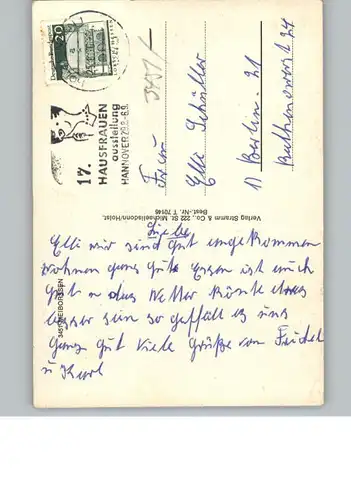 Deutsche Bundespost
20
17.
HAUSFRAUEN
ausstellung
HANNOVER 29.8.-6.9.
Frau
Elli Schüller
1) Berlin. 21
Verlag Stramm & Co., 222 St. Michaelisdonn/Holst.
Best.-Nr. T 70146
3451 HEIBORSSEN
Liebe
Elli wir sind gut angekommen
wohnen ganz gut Essen ist auch
gut u das Wetter könte etwas
besser sein so gefällt es uns
ganz gut Viele Grüße von
u Karl